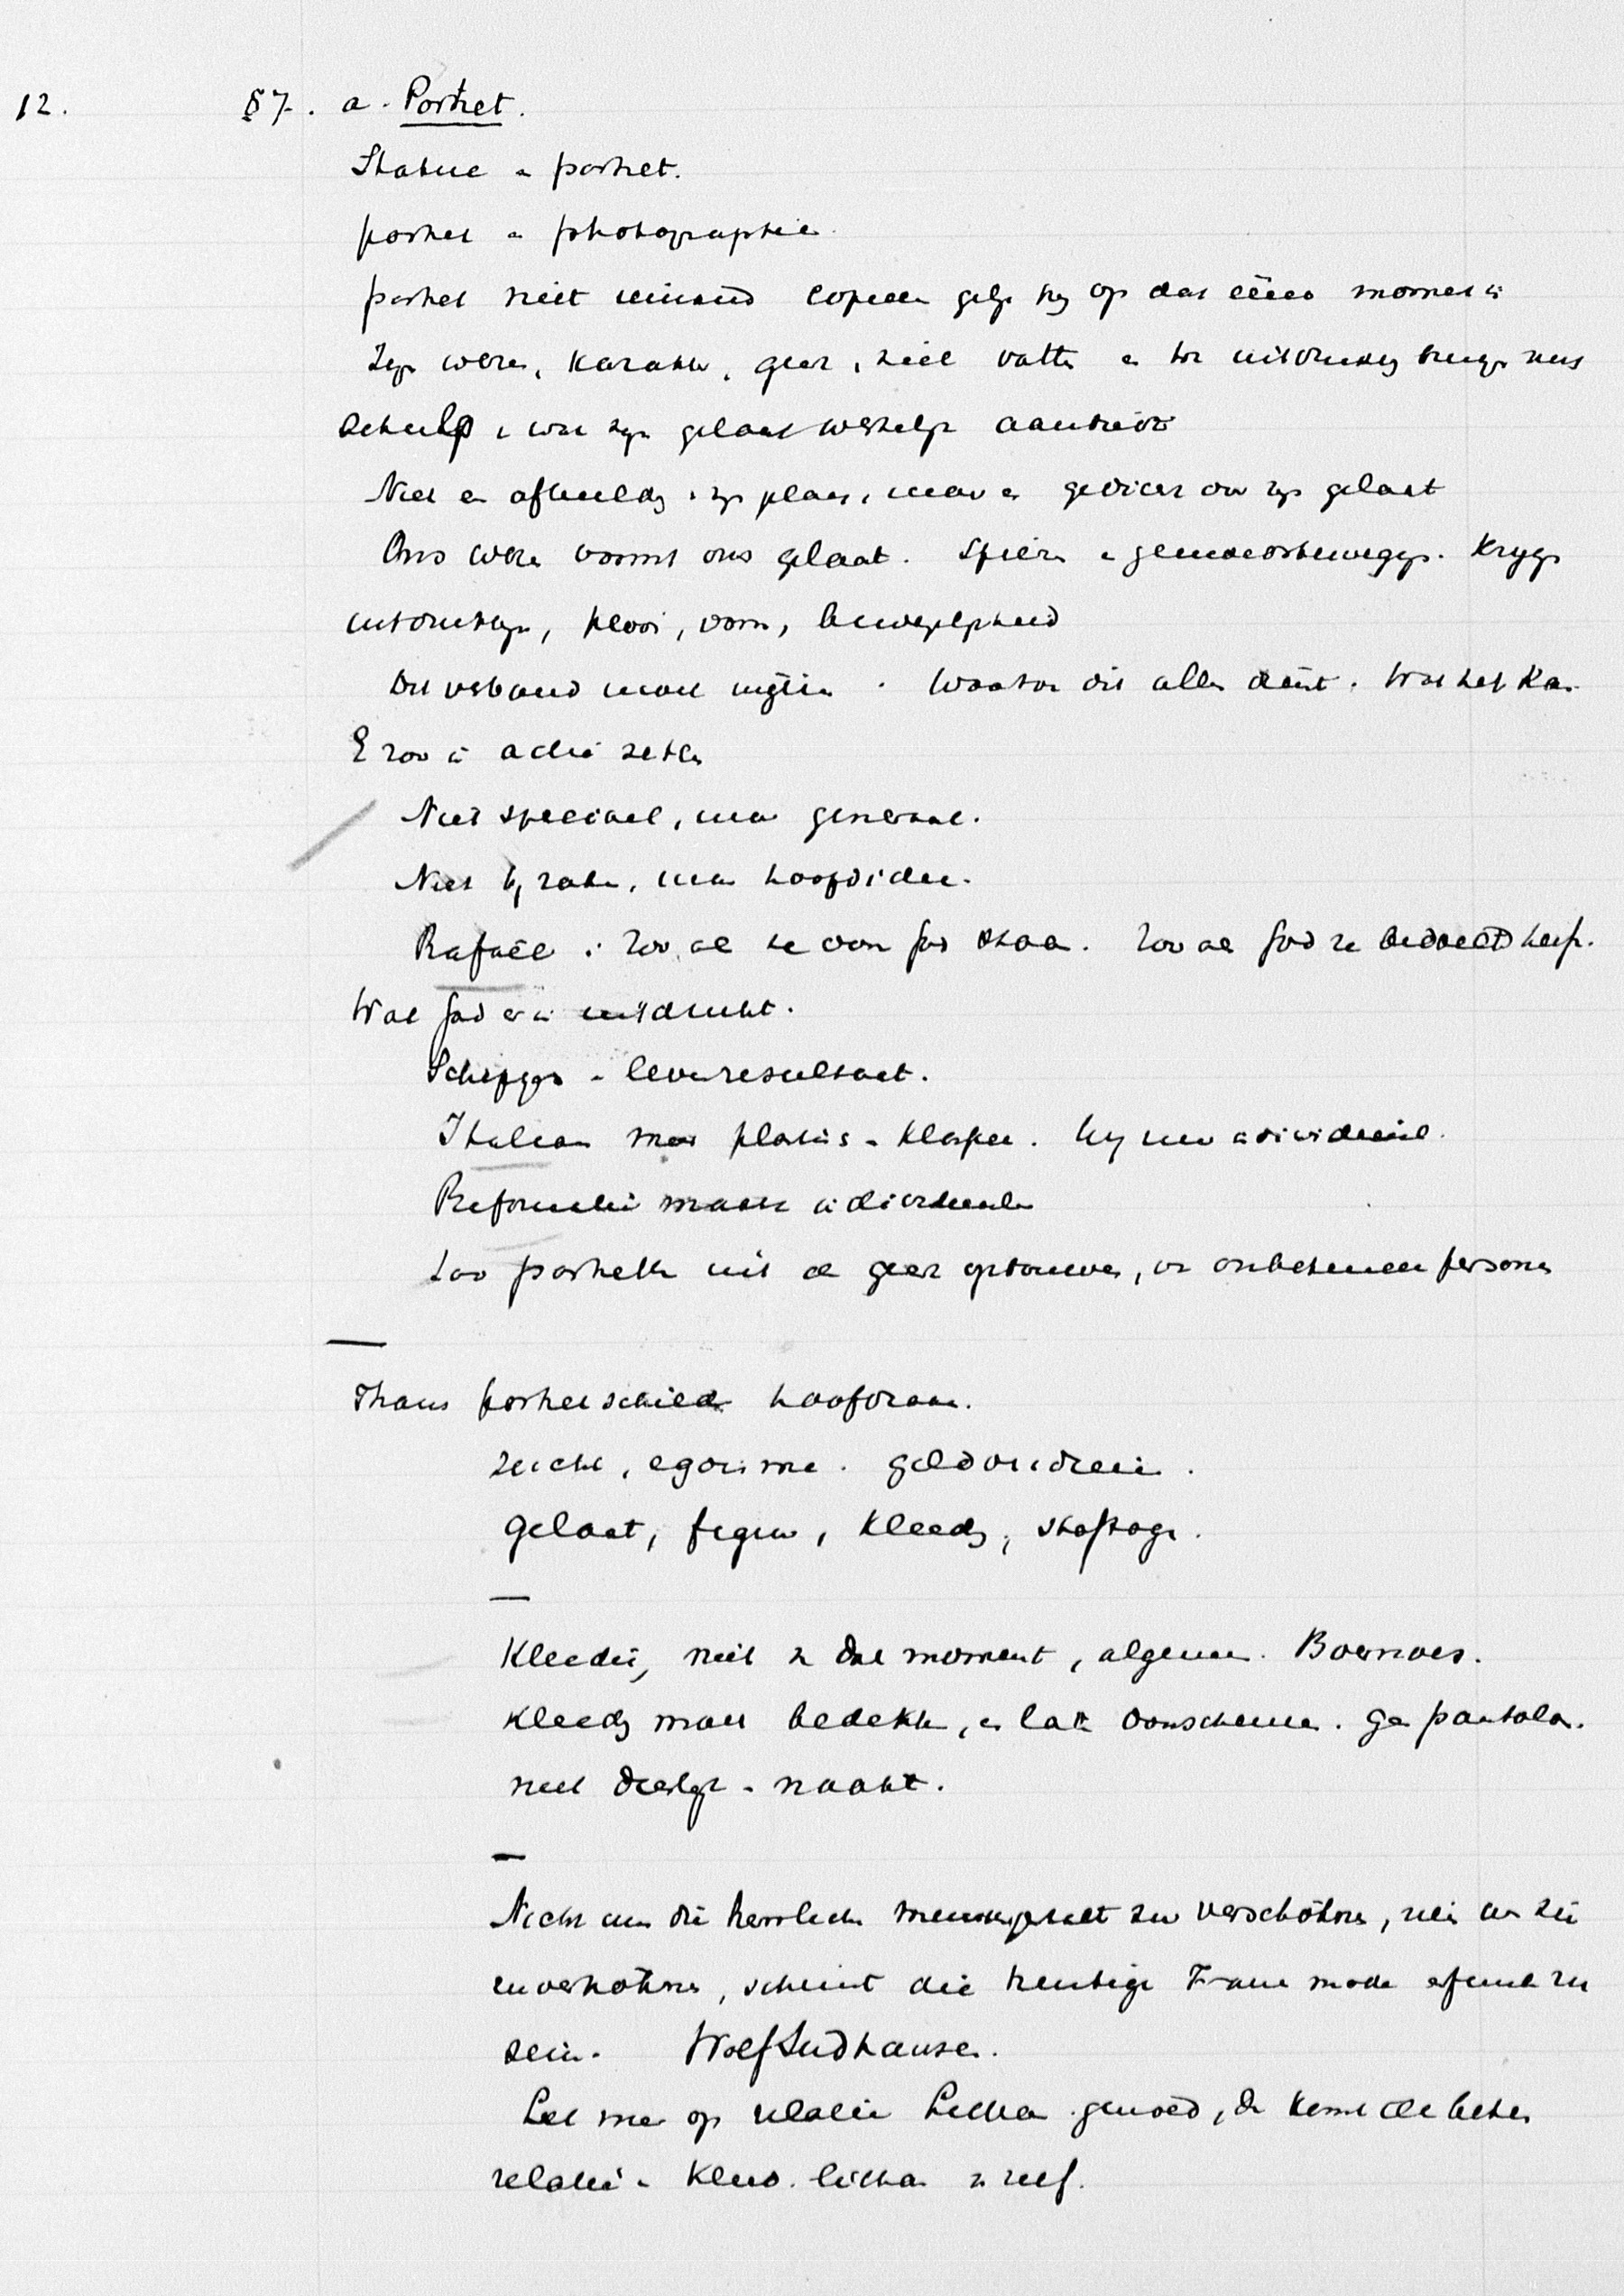 12. §7. a. Portret.
Statue en portret.
portret en photographie.
portret niet iemand copieeren gelijk hij op dat ééne moment is
Zijn wezen, karakter, geest, ziel vatten en tot uitdrukking brengen
en wat zijn gelaat werkelijk aanbiedt
Niet een afbeelding zijn plaats, maar een gedicht over zijn gelaat
Ons wezen vormt ons gelaat. Spieren en gemoedsbewegingen. Krijgen
uitdrukking, plooi, vorm, bewegelijkheid
Dit verband moet uitzien. Waartoe dit alles dient. Wat het kan.
E zoo in actie zetten
Niet speciaal, maar generaal.
Niet bijzaken, maar hoofdidee.
Rafaël: Zoo als ze voor God staan. Zoo als God ze bedoeld heeft.
Wat God er in uitdrukt.
Scheppings levensresultaat.
Italiaan meer platonisch klassiek. Hij meer individueel.
Reformatie maakte individueele
Zoo portretten uit de geest opbouwen, van onbekende personen
Thans portretschilderen hoofdzaak.
zucht, egoisme. geld verdienen.
gelaat, figuur, kleeding, stoffage.
Kleedij, niet van dat moment, algemeen. Boernoes.
Kleeding moet bedekken, en laten doorschemeren. Geen pantalon.
niet dierlijk naakt.
Nicht um die herrliche Menschengestalt zu verschönern, nein um sie
zu verhöhnen, scheint die heutige Frauen mode erfunden zu
sein. Wolf Sudhausen.
Let men op relatie Lichaam gemoed, dan komt de betere
relatie kleed. lichaam van zelf.